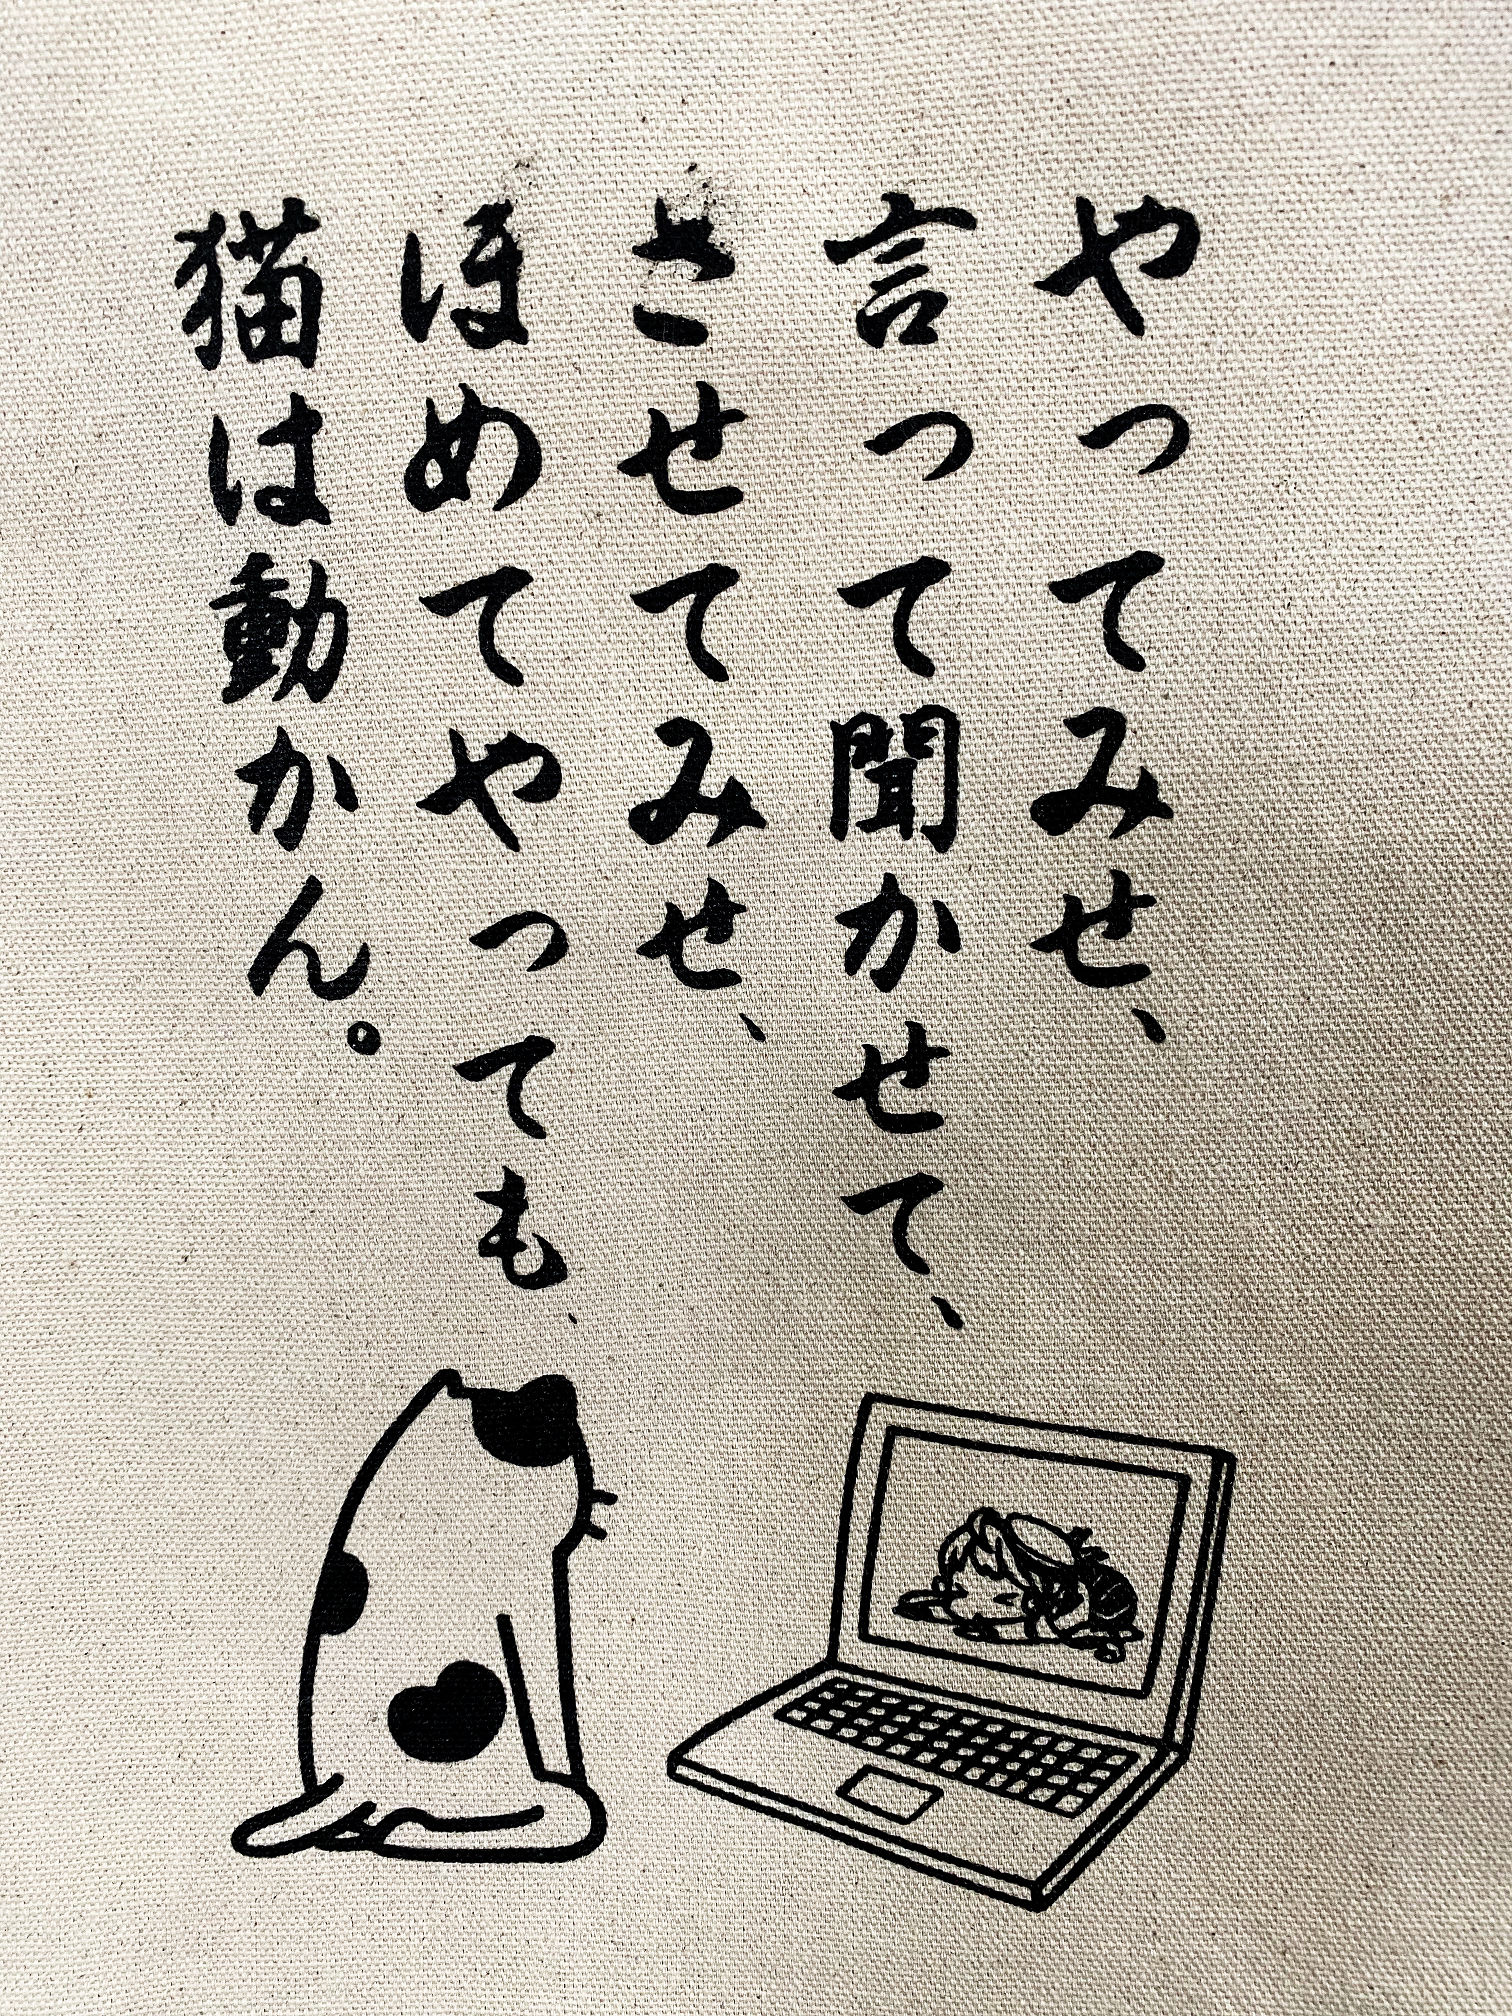 やってみせ、
言って聞かせて、
させてみせ、
ほめてやっても、
猫は動かん。